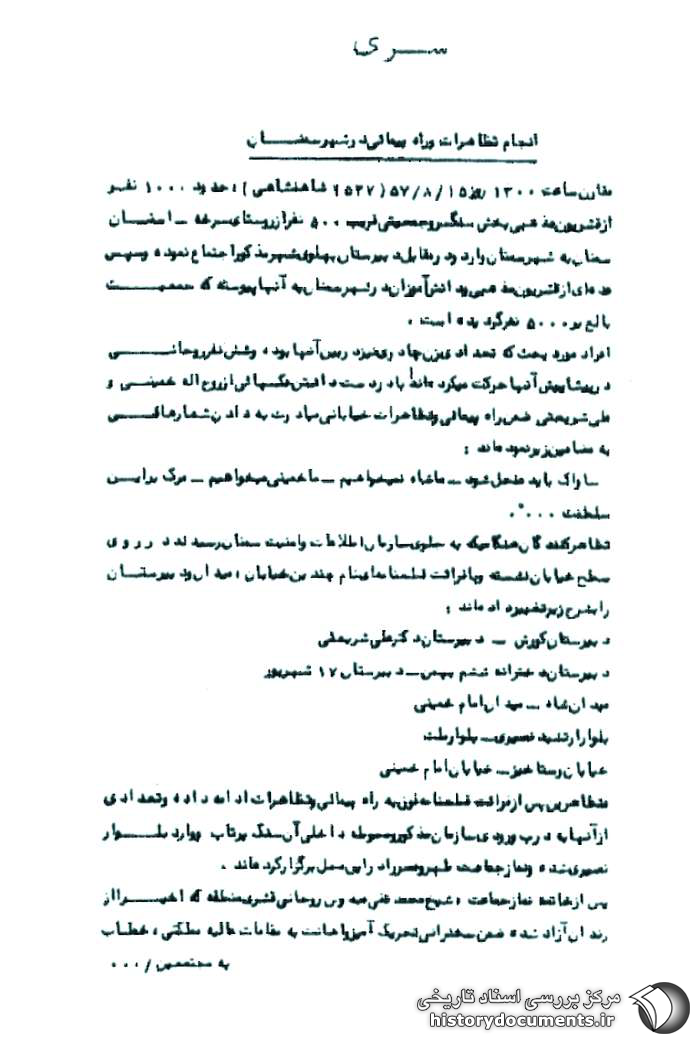 ســـری
انجام تظاهرات وراه پیمائی در شهر سمنـــان
مقارن ساعت ۱۳۰۰ روز ۱۵/۸/۵۷ (۲۵۳۷ شاهنشاهی) ، حدود ۱۰۰۰ نفر
از قشریون مذهبی بخش سنگسر و جمعیتی قریب ۵۰۰ نفر از روستای سرخه ـ
سمنان به شهر سمنان وارد و در مقابل دبیرستان پهلوی شهر مذکور اجتماع نموده و سپس
عده‌ای از قشریون مذهبی و دانش آموزان در شهر سمنان به آنها پیوسته که جمعیـــت
بالغ بر ۵۰۰۰ نفر گردیده است .
افراد مورد بحث که تعدادی زن چادری نیز در بین آنها بوده وشش نفر روحانـــی
در پیشاپیش آنها حرکت میکرده‌اند با در دست داشتن عکسهائی از روح اله خمینی و
علی شریعتی ضمن راه پیمائی وتظاهرات خیابانی مبادرت به دادن شعارهائـــی
به مضامین زیر نموده‌اند :
ساواک باید منحل شود ـ ما شاه نمیخواهیم ـ ما خمینی میخواهیم ـ مرگ بر ایـــن
سلطنت ۰۰۰" .
تظاهرکنندگان هنگامیکه به جلوی سازمان اطلاعات وامنیت سمنان رسیدند در روی
سطح خیابان نشسته وبا قرائت قطعنامه‌ای نام چندین خیابان ، میدان ودبیرستـــان
را بشرح زیر تغییر داده‌اند :
دبیرستان کورش ـ دبیرستان دکتر علی شریعتی
دبیرستان دخترانه ششم بهمن ـ دبیرستان ۱۷ شهریور
میدان شاه ـ میدان امام خمینی
بلوار ارتشبد نصیری ـ بلوار ملت
خیابان رستاخیز ـ خیابان امام خمینی
متظاهرین پس از قرائت قطعنامه فوق به راه پیمائی وتظاهرات ادامه داده وتعدادی
از آنها به درب ورودی سازمان مذکور ومحوطه داخلی آن سنگ پرتاب ووارد بلـــوار
نصیری شده ونماز جماعت ظهر وعصر را در این محل برگزار کرده‌اند .
پس از خاتمه نماز جماعت ، شیخ محمد تقی روحانی قشری منطقه که اخیـــرا از
زندان آزاد شده ضمن سخنرانی تحریک آمیز واهانت به مقامات عالیه مملکتی ، خطاب
به مجتمعین /۰۰۰
مرکز بررسی اسناد تاریخی
historydocuments.ir